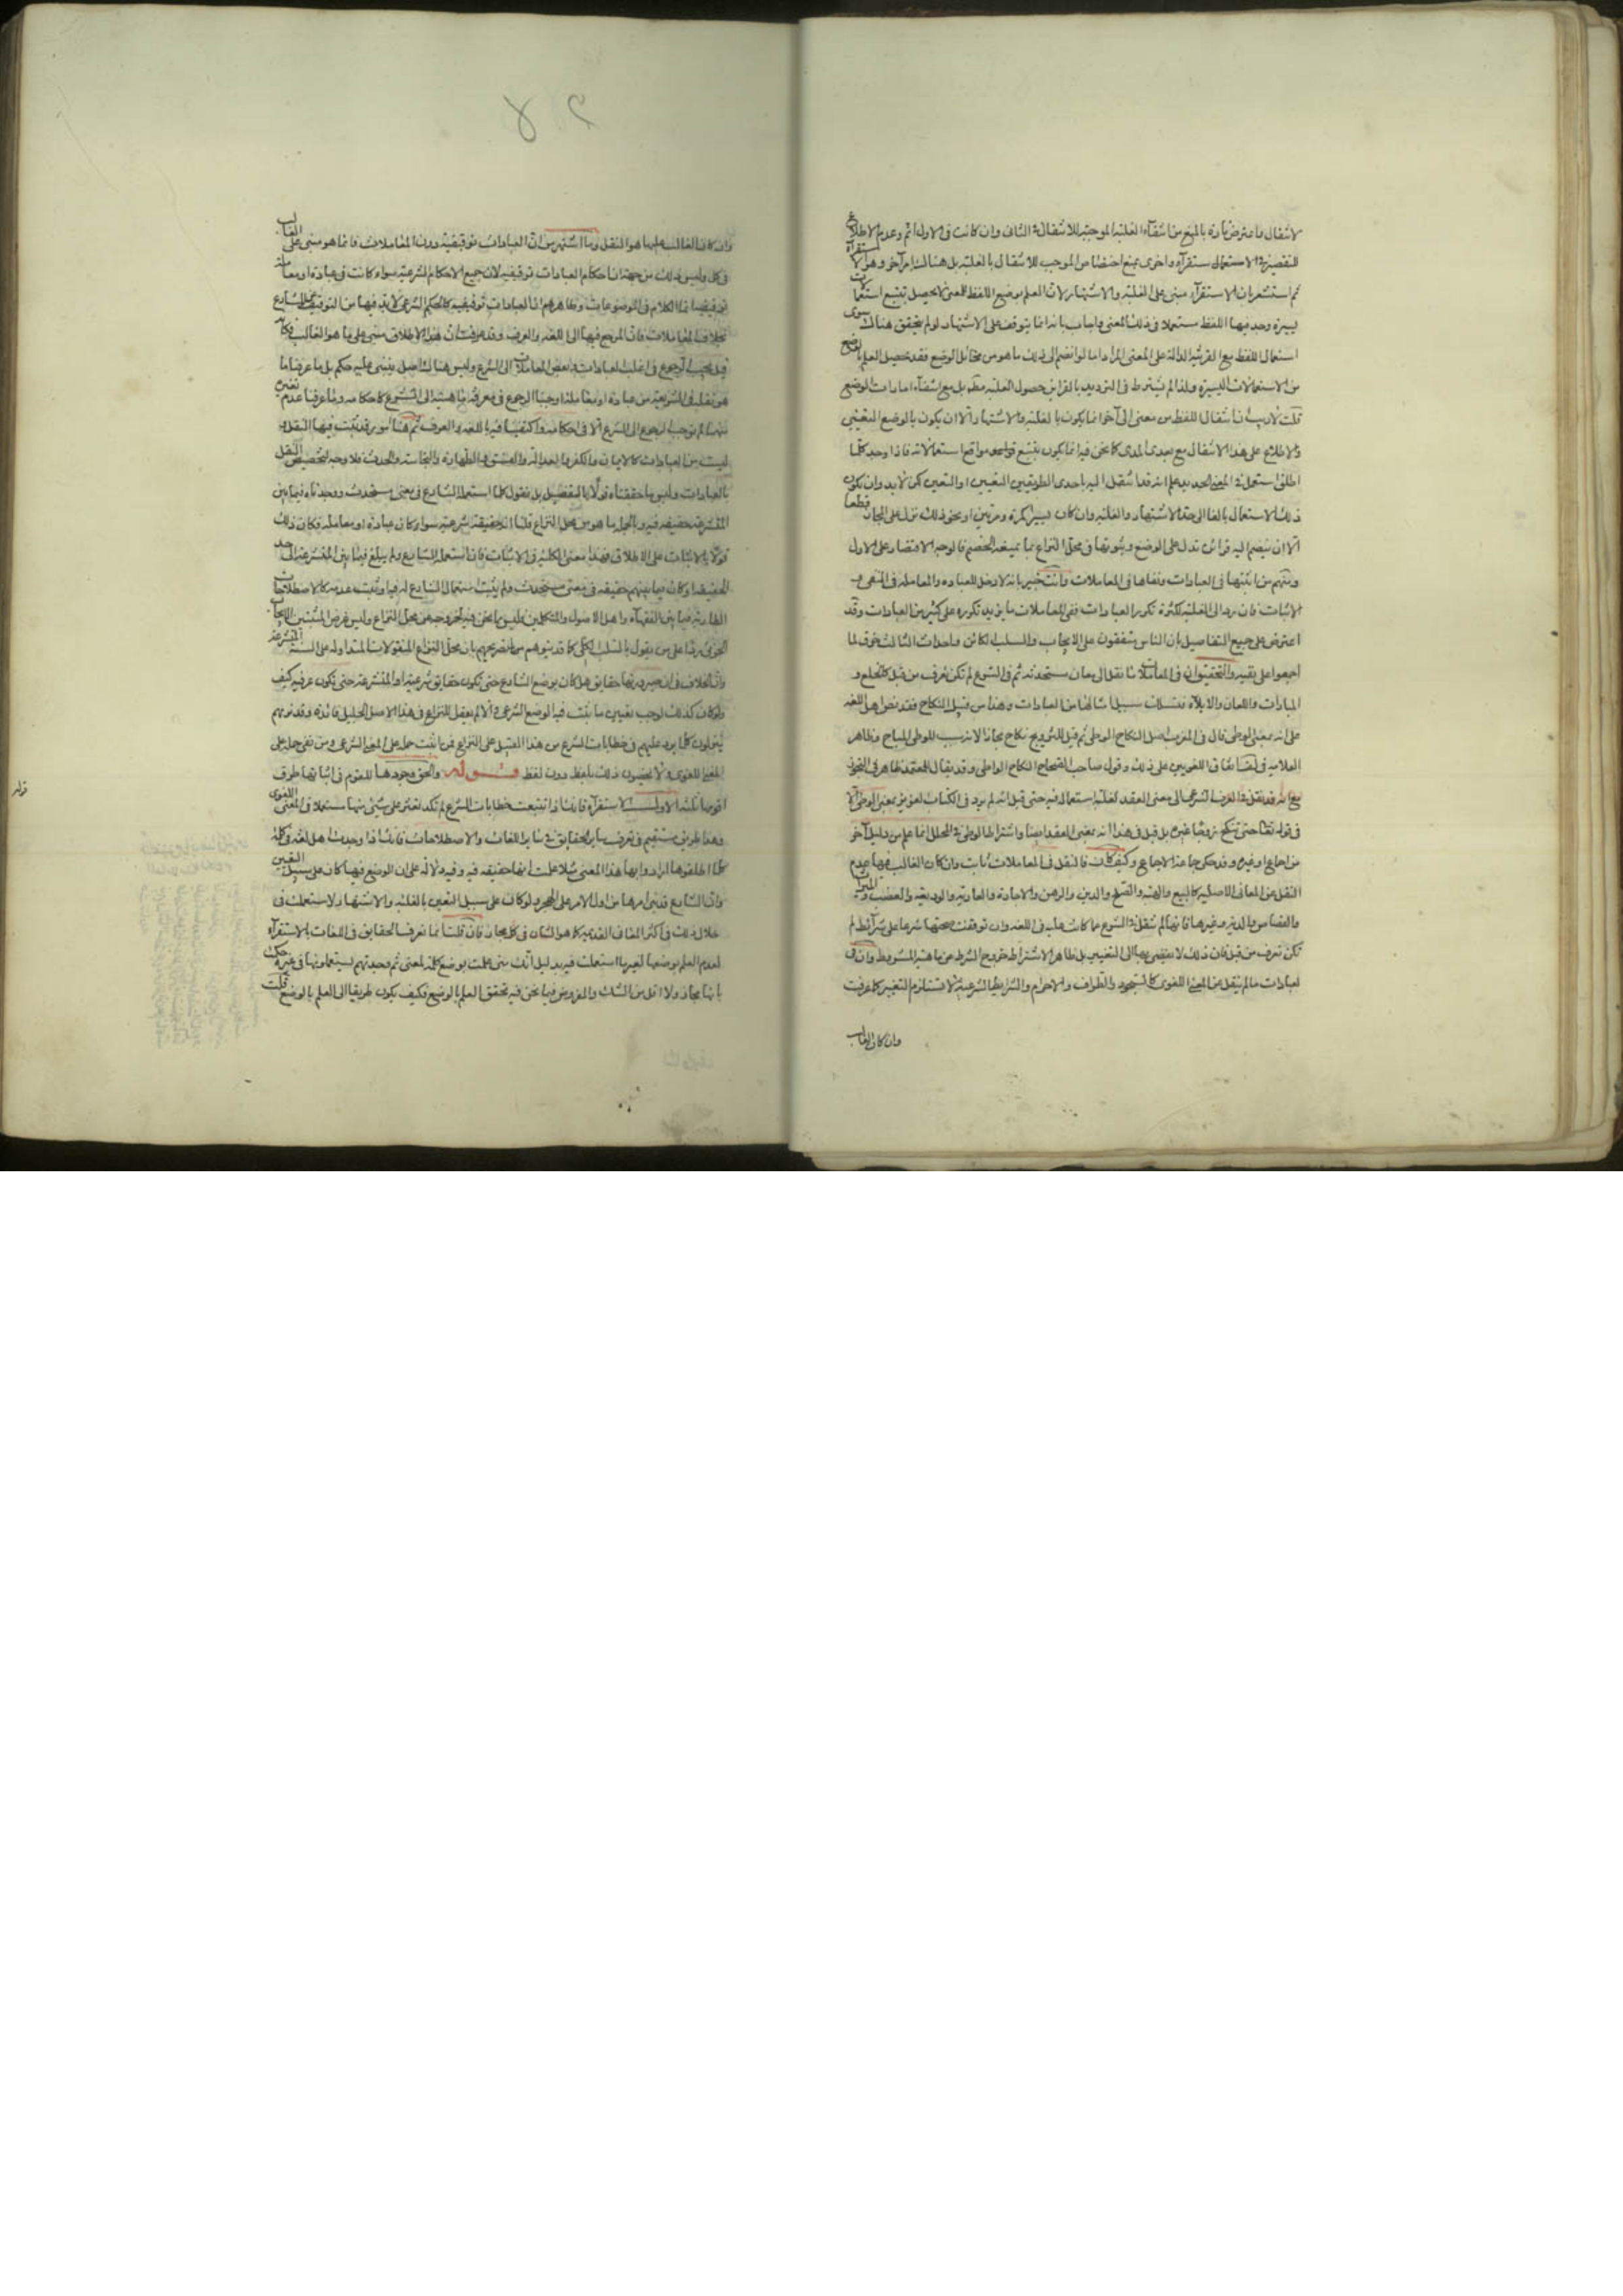 الانتقال واعترض تارة بالمنع من انتفاء الغلبة الموجبة للانتقال في الثاني وان كانت في الاول اتم وعدم الاطلاع
للتقصير في الاستقراء واخرى بمنع اختصاص الموجب للانتقال بالغلبة بل هنالك امر آخر وهو الاستقراء
ثم استشعر بان الاستقراء مبني على الغلبة والاشتهار لان العلم بوضع اللفظ للمعنى لا يحصل بتتبع استعمالات
يسيرة وجد فيها اللفظ مستعملا في ذلك المعنى واجاب بانه انما يتوقف على الاشتهار لو لم يتحقق هناك سوى
استعمال اللفظ مع القرينة الدالة على المعنى المراد اما لو انضم الى ذلك ما هو من مخائل الوضع فقد يحصل العلم بالوضع
من الاستعمالات اليسيرة ولذا لم يشترط في الترديد بالقراين حصول الغلبة مطم بل مع انتفاء امارات الوضع
قلت لا ريب ان انتقال اللفظ من معنى الى آخر انما يكون بالغلبة والاشتهار الا ان يكون بالوضع التعييني
والاطلاع على هذا الانتقال مع بعد المدى كما نحن فيه انما يكون بتتبع مواقع استعمالاته فاذا وجد كلما
اطلق استعمل في المعنى الجديد علم انه قد انتقل اليه باحدى الطريقتين التعيين او التعين لكن لا بد وان يكون
ذلك الاستعمال بالغا الى حد الاشتهار والغلبة وان كان يسيرا كمرة ومرتين او نحو ذلك نزل على المجاز قطعا
الا ان ينضم اليه قرائن تدل على الوضع وثبوتها في محل النزاع مما يمنعه الخصم فالوجه الاقتصار على الاول
ومنهم من اثبتها في العبادات ونفاها في المعاملات وانت خبير بانه لا دخل للعبادة والمعاملة في النفي و
الاثبات فان رد الى الغلبة لكثرة تكرر العبادات ففي المعاملات ما يزيد تكرره على كثير من العبادات وقد
اعترض على جميع التفاصيل بان الناس متفقون على الايجاب والسلب الكلي واحداث الثالث خرق لما
اجمعوا على نفيه والتحقيق ان في المعاملات ما نقل الى معان مستحدثة في الشرع لم تكن تعرف من قبل كالخلع و
المبارات واللعان والايلاء فسبيلها سبيل امثالها من العبادات وهذا من قبيل النكاح فقد نص اهل اللغة
على انه بمعنى الوطي قال في المغرب اصل النكاح الوطي ثم قيل للتزويج نكاح مجازا لانه سبب للوطي المباح وظاهر
العلامة في اتفاق اللغويين على ذلك وقول صاحب الصحاح النكاح الوطي وقد يقال للعقد ظاهر في التجوز
مع انه قد نقل في العرف الشرعي الى معنى العقد لغلبة استعماله فيه حتى قيل انه لم يرد في الكتاب العزيز بمعنى الوطي الا
في قوله تعالى حتى تنكح زوجا غيره بل قيل في هذا انه بمعنى العقد ايضا واشتراط الوطي في المحلل انما علم من دليل آخر
من اجماع او غيره وقد حكى جماعة الاجماع وكيف كان فالنقل في المعاملات ثابت وان كان الغالب فيها عدم
النقل عن المعاني الاصلية كالبيع والهبة والصلح والدين والرهن والاجارة والعارية والوديعة والغصب والميراث
والقصاص والدية وغيرها فانها لم تنقل في الشرع عما كانت عليه في اللغة وان توقفت صحتها شرعا على شرائط لم
تكن تعرف من قبل فان ذلك لا يفضي بها الى التغيير بل ظاهر الاشتراط خروج الشرط عن ماهية المشروط وان في
العبادات ما لم ينقل عن المعنى اللغوي كالسجود والطواف والاحرام والشرائط الشرعية لا تستلزم التغيير كما عرفت
وان كان الغالب
وان كان الغالب عليها هو النقل وما اشتهر من ان العبادات توقيفية دون المعاملات فانما هو مبني على الغالب
في كل وليس ذلك من جهة ان احكام العبادات توقيفية لان جميع الاحكام الشرعية سواء كانت في عبادة او معاملة
توقيفية انما الكلام في الموضوعات وظاهرهم ان العبادات توقيفية كالحكم الشرعي لا بد فيها من التوقيف من الشارع
بخلاف المعاملات فان المرجع فيها الى اللغة والعرف وقد عرفت ان هذا الاطلاق مبني على ما هو الغالب فكما
قيل يجب الرجوع في اغلب العبادات وبعض المعاملات الى الشرع وليس هنالك اصل يبتنى عليه حكم بل ما عرفنا
هو نقله في الشريعة من عبادة او معاملة اوجبنا الرجوع في معرفة ماهيته الى الشرع كاحكامه وما عرفنا عدم تغيره
منهما لم نوجب الرجوع الى الشرع الا في احكامه واكتفينا فيه باللغة والعرف ثم هنا امور قد ثبت فيها النقل و
ليست من العبادات كالايمان والكفر والعدالة والفسق والطهارة والنجاسة والحدث فلا وجه لتخصيص النقل
بالعبادات وليس ما حققناه قولا بالتفصيل بل نقول كلما استعمله الشارع في معنى مستحدث ووجدناه فيما بين
المتشرعة حقيقة فيه وبالجملة ما هو من محل النزاع قلنا انه حقيقة شرعية سواء كان عبادة او معاملة فكان ذلك
قولا بالاثبات على الاطلاق فهذا معنى الكلية في الاثبات فاما ما استعمله الشارع ولم يبلغ فيما بين المتشرعة الى حد
الحقيقة او كان فيما بينهم حقيقة في معنى مستحدث ولم يثبت استعمال الشارع له فيه او ثبت عدمه كالاصطلاحات
الطارية فيما بين الفقهاء واهل الاصول والمتكلمين فليس مما نحن فيه لخروجه عن محل النزاع وليس غرض المثبتين الايجاب
الجزئي ردا على من يقول بالسلب الكلي كما قد يتوهم من تصريحهم بان محل النزاع المنقولات المتداولة على السنة المتشرعة
وان الخلاف في ان صيرورتها حقايق هل كان بوضع الشارع حتى تكون حقايق شرعية او المتشرعة حتى تكون عرفية كيف
ولو كان كذلك لوجب تعيين ما ثبت فيه الوضع الشرعي والا لم يعقل للنزاع في هذا الاصل الجليل فائدة وقد تريهم
ينزلون كلما يرد عليهم في خطابات الشرع من هذا القبيل على النزاع فمن اثبت حمله على المعنى الشرعي ومن نفى حمله على
المعنى اللغوي ولا يخصون ذلك بلفظ دون لفظ قوله والحق وجودها للقوم في اثباتها طرق
اقويها ثلثة الاول الاستقراء فانك اذا تتبعت خطابات الشرع لم تكد تعثر على شيء منها مستعملا في المعنى اللغوي
وهذا طريق مستقيم في تعرف ساير الحقايق في ساير اللغات والاصطلاحات فانك اذا وجدت اهل لغة وكلمة
كلما اطلقوها ارادوا بها هذا المعنى مثلا علمت انها حقيقة فيه وفيه دلالة على ان الوضع فيها كان على سبيل التعيين
وان الشارع قد بنى امرها من اول الامر على الهجر ولو كان على سبيل التعين بالغلبة والاشتهار لاستعملت في
خلال ذلك في اكثر المعاني القديمة كما هو الشان في كل مجاز فان قلت انما تعرف الحقايق في اللغات بالاستقراء
لعدم العلم بوضعها لغير ما استعملت فيه بدليل انك متى علمت بوضع كلمة لمعنى ثم وجدتهم يستعملونها في غيره حكمت
بانها مجاز ولا اقل من الشك والمفروض فيما نحن فيه تحقق العلم بالوضع فكيف يكون طريقا الى العلم بالوضع قلت